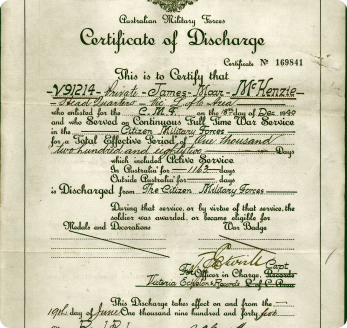 Australian Military Forces
Certificate of Discharge
Certificate Nº 169841
This is to Certify that
V91214 - Private - James - Moar - McHenzie
Head Quarters - Vic L of C Area
who enlisted for the C.M.F. on the 18th day of Dec 1940
and who Served on Continuous Full Time War Service
in the Citizen Military Forces
for a Total Effective Period of One thousand
two hundred and Days
which included Active Service
In Australia for 1163 days
Outside Australia for days
is Discharged from The Citizen Military Forces
During that service, or by virtue of that service, the
soldier was awarded, or became eligible for
Medals and Decorations War Badge
Capt
Officer in Charge, Records
Victoria Echelon & Records L of C Area
This Discharge takes effect on and from the
19th day of June One thousand nine hundred and forty four